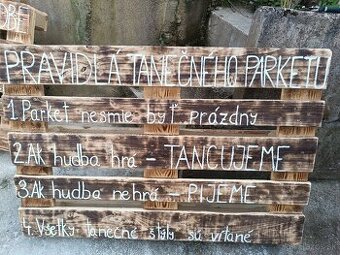 OBE
PRAVIDLÁ TANEČNÉHO PARKETU
1. Parket nesmie byť prázdny
2. Ak hudba hrá - TANCUJEME
3. Ak hudba nehrá - PIJEME
4. Všetky tanečné štýly sú vítané